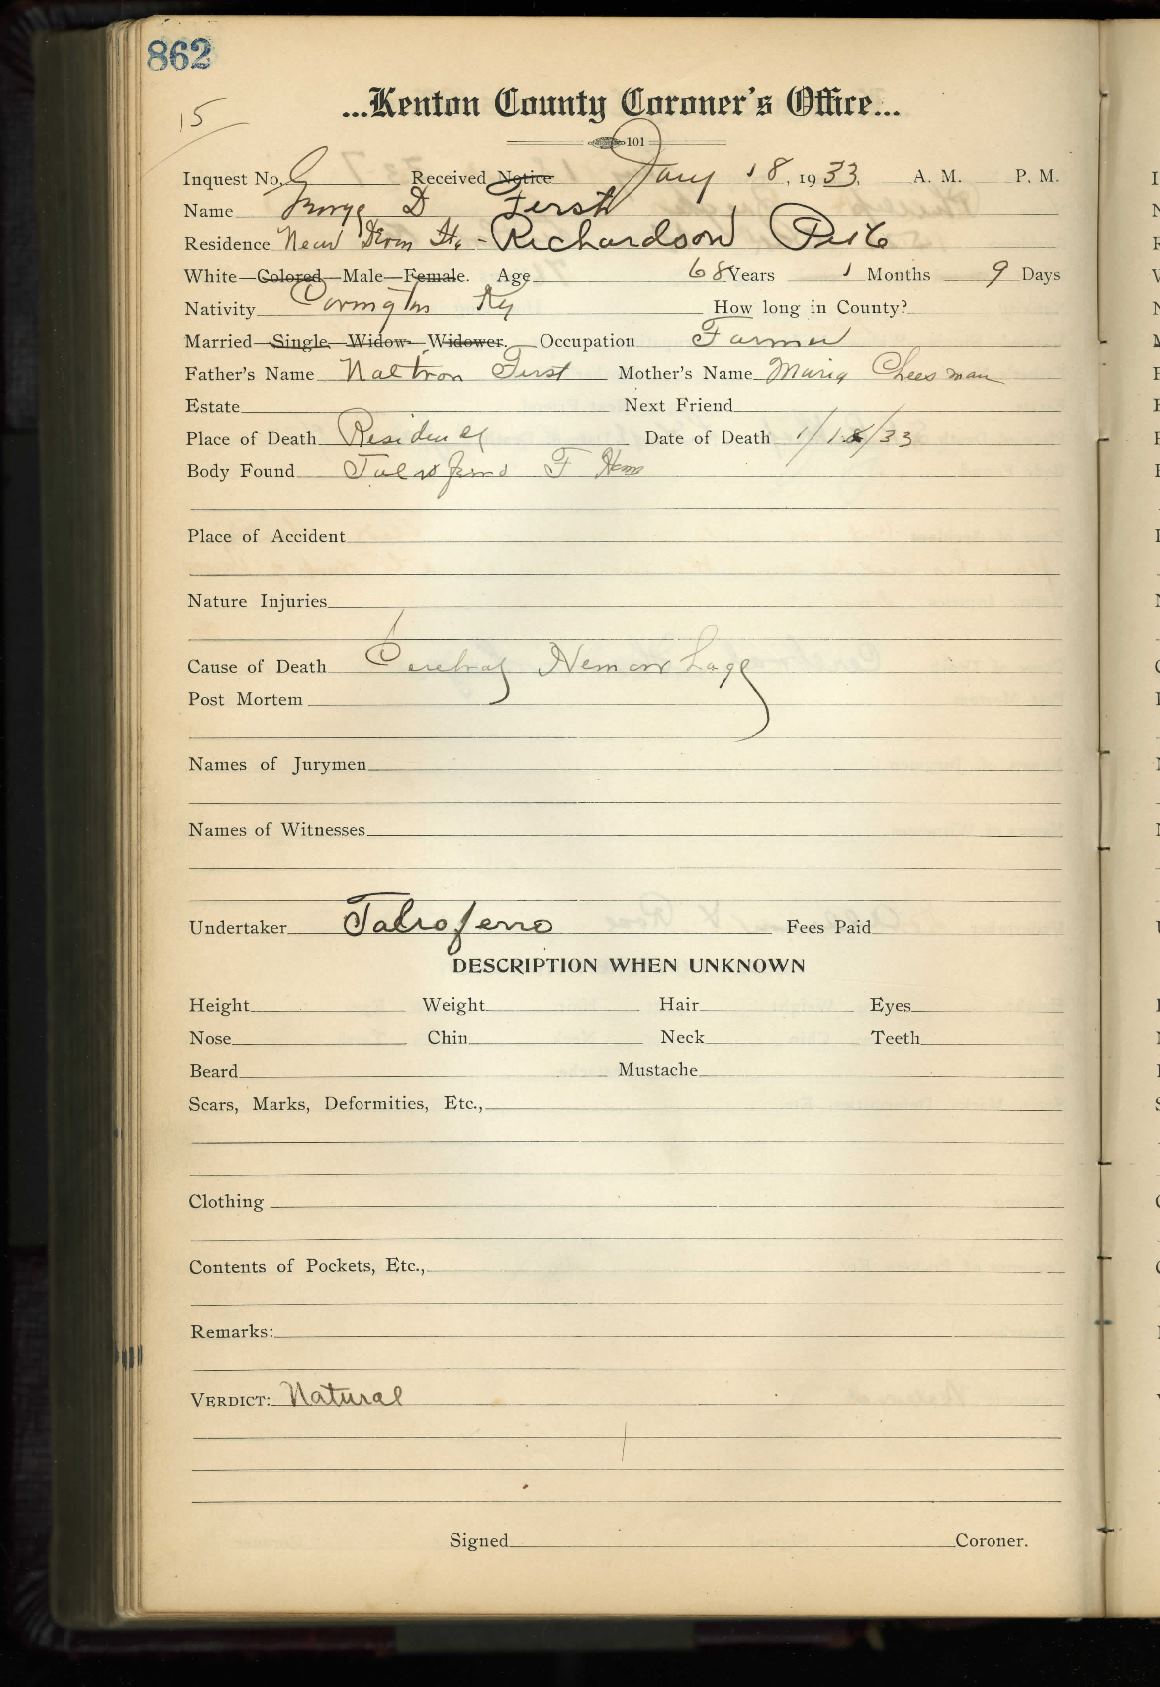 862
15
...Kenton County Coroner's Office...
101
Inquest No. Received Notice Jany 18, 1933, A. M. P. M.
Name George D Ferst
Residence Near - Richardson Pike
White—Colored—Male—Female. Age 68 Years 1 Months 9 Days
Nativity Covington Ky How long in County?
Married—Single—Widow—Widower. Occupation Farmer
Father's Name First Mother's Name Maria Cheesman
Estate Next Friend
Place of Death Residence Date of Death 1/18/33
Body Found Taliaferro F Home
Place of Accident
Nature Injuries
Cause of Death Cerebral Hemorrhage
Post Mortem
Names of Jurymen
Names of Witnesses
Undertaker Taliaferro Fees Paid
DESCRIPTION WHEN UNKNOWN
Height Weight Hair Eyes
Nose Chin Neck Teeth
Beard Mustache
Scars, Marks, Deformities, Etc.,
Clothing
Contents of Pockets, Etc.,
Remarks:
VERDICT: Natural
Signed Coroner.